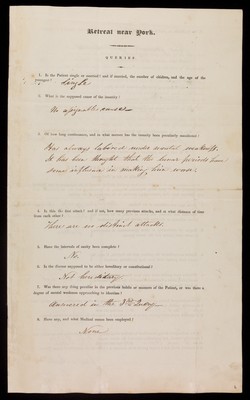 Retreat near York.
QUERIES.
1. Is the Patient single or married? and if married, the number of children, and the age of the youngest?
Single
2. What is the supposed cause of the insanity?
No apparent cause
3. Of how long continuance, and in what manner has the insanity been peculiarly manifested?
Has always labored under mental weakness.
It has been thought that the lunar periods have
some influence in making him worse.
4. Is this the first attack? and if not, how many previous attacks, and at what distance of time from each other?
There are no distinct attacks.
5. Have the intervals of sanity been complete?
No.
6. Is the disease supposed to be either hereditary or constitutional?
Not hereditary
7. Was there any thing peculiar in the previous habits or manners of the Patient, or was there a degree of mental weakness approaching to idiotism?
Answered in the 3rd Query
8. Have any, and what Medical means been employed?
None